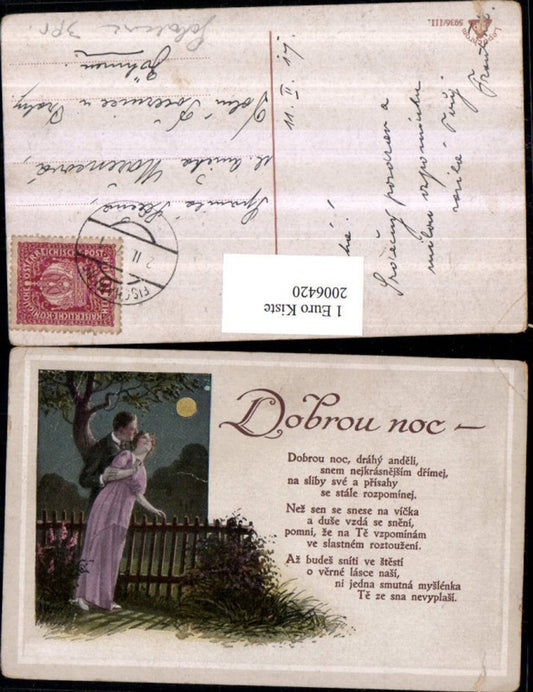 5036/III.
11. II. 17.
Srdečný pozdrav a
milou vzpomínku
Tvůj
Slečna
Dolní Počernice u Prahy
Böhmen.
FISCHAMEND
KAISERLICHE KÖNIGLICHE ÖSTERREICHISCHE POST
10
1 Euro Kiste
2006420
Dobrou noc –
Dobrou noc, dráhý anděli,
snem nejkrásnějším dřímej,
na sliby své a přísahy
se stále rozpomínej.
Než sen se snese na víčka
a duše vzdá se snění,
pomni, že na Tě vzpomínám
ve slastném roztoužení.
Až budeš sníti ve štěstí
o věrné lásce naší,
ni jedna smutná myšlénka
Tě ze sna nevyplaší.